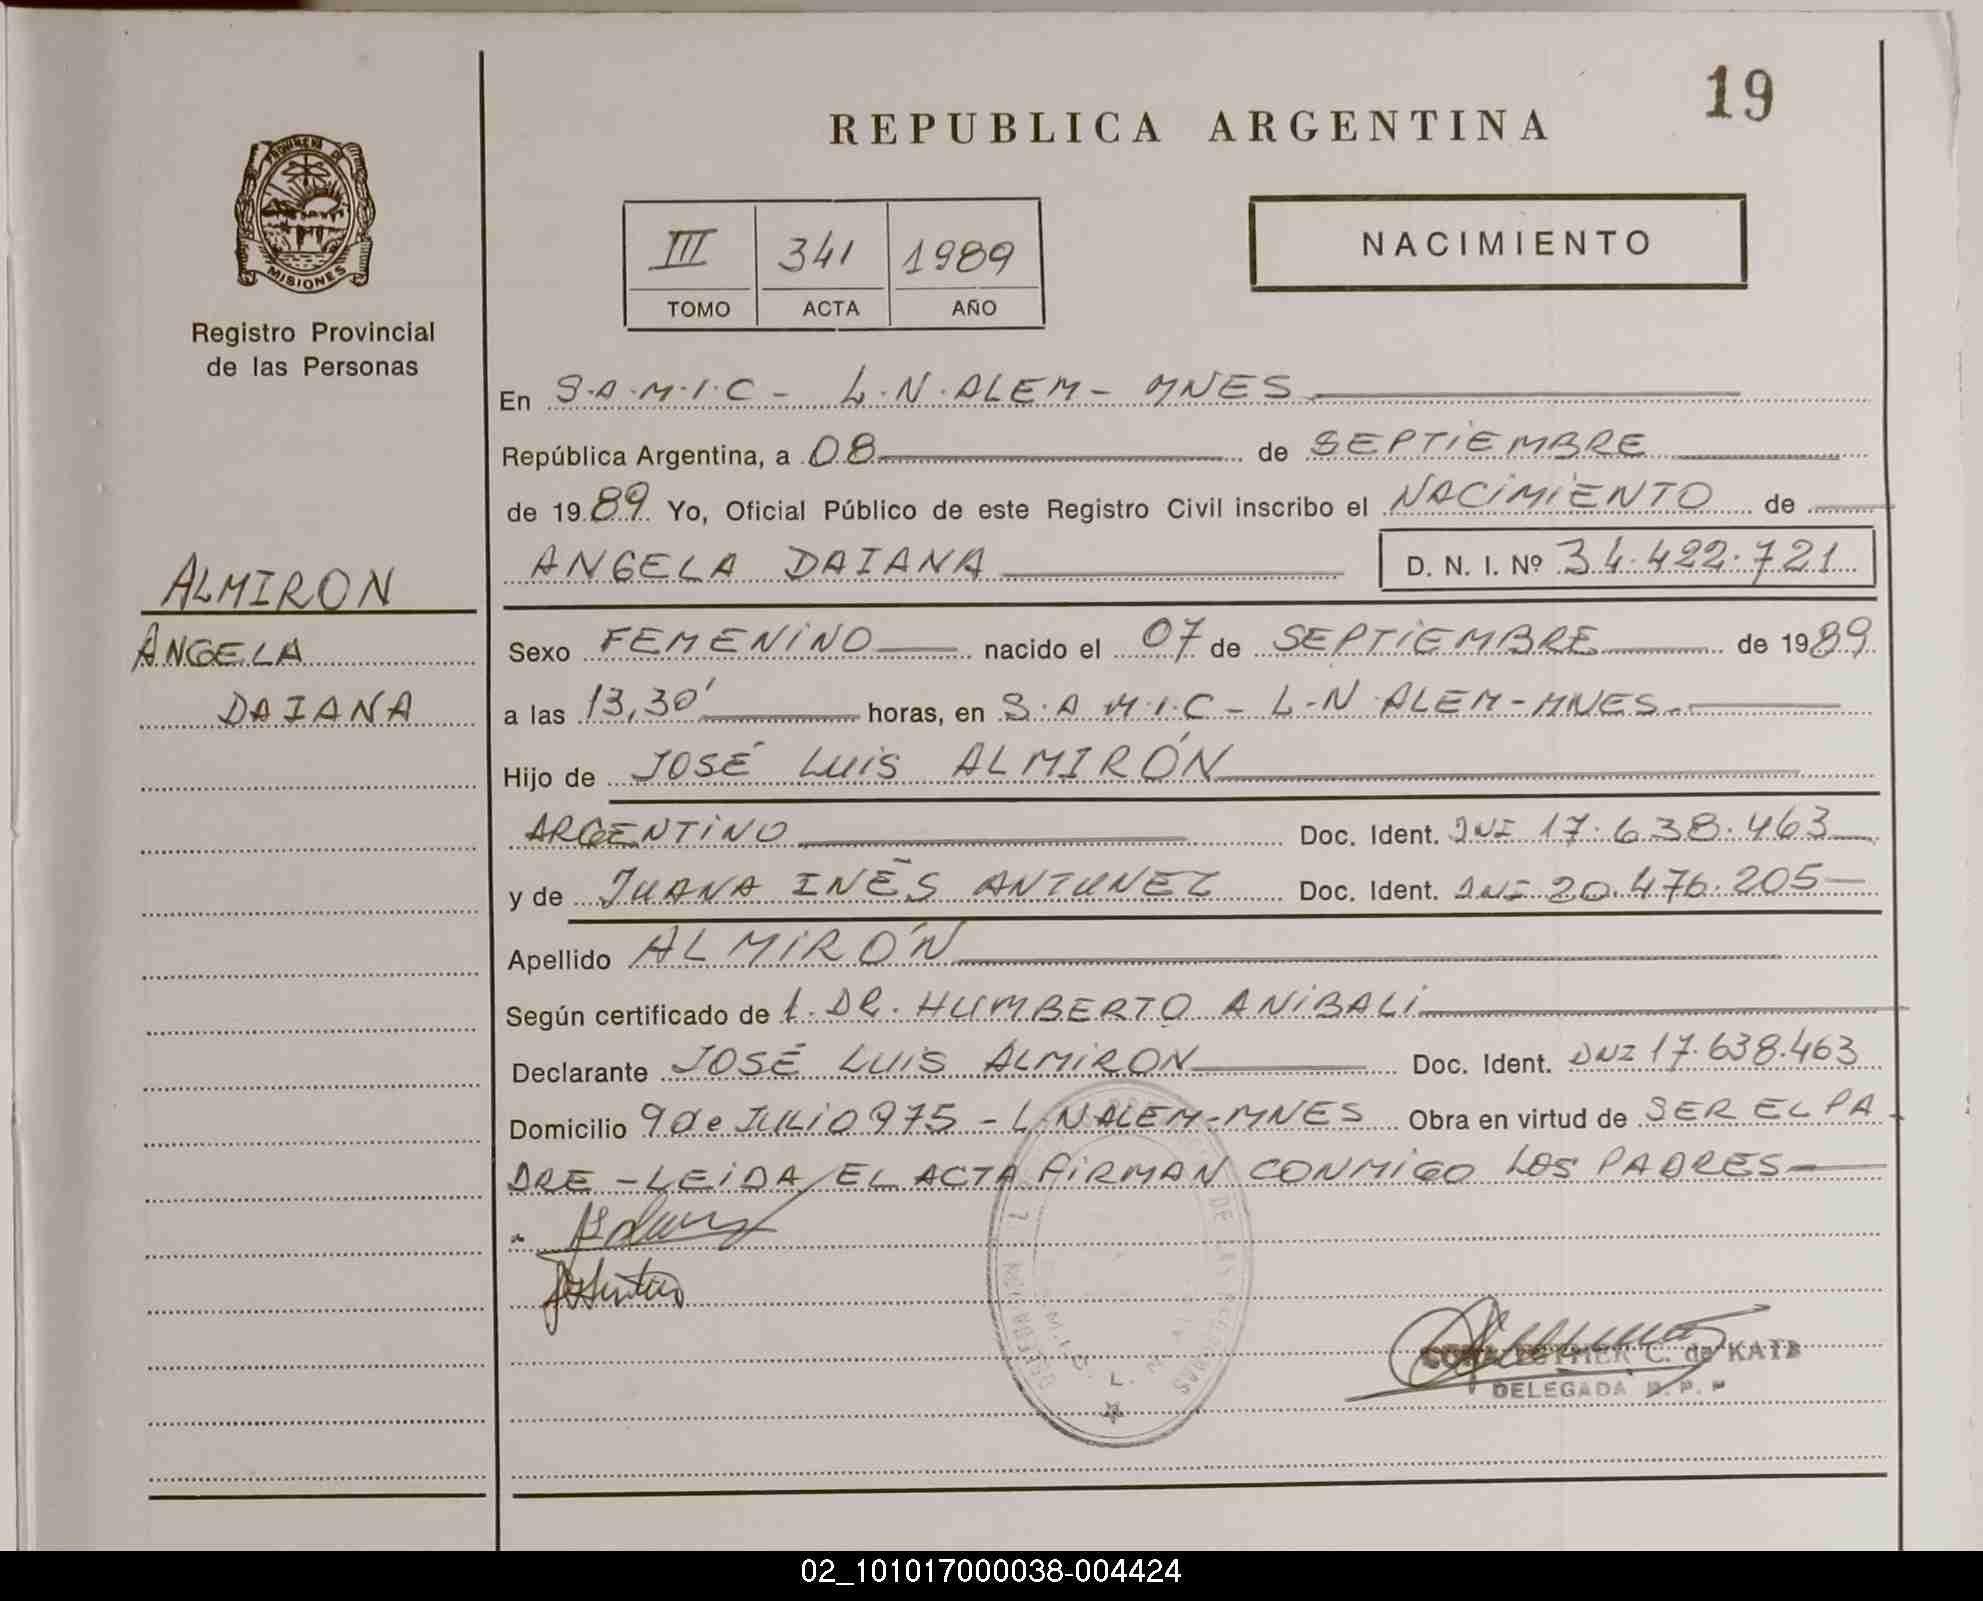 19
REPUBLICA ARGENTINA
PROVINCIA DE
MISIONES
Registro Provincial
de las Personas
III 341 1989
TOMO ACTA AÑO
NACIMIENTO
ALMIRON
ANGELA
DAIANA
En S.A.M.I.C - L.N.ALEM - MNES
República Argentina, a 08 de SEPTIEMBRE
de 1989 Yo, Oficial Público de este Registro Civil inscribo el NACIMIENTO de
ANGELA DAIANA D. N. I. Nº 34.422.721
Sexo FEMENINO nacido el 07 de SEPTIEMBRE de 1989
a las 13,30' horas, en S.A.M.I.C - L.N.ALEM - MNES
Hijo de JOSÉ LUIS ALMIRÓN
ARGENTINO Doc. Ident. DNI 17.638.463
y de JUANA INÉS ANTUNEZ Doc. Ident. DNI 20.476.205
Apellido ALMIRÓN
Según certificado de 1. DR. HUMBERTO ANIBALI
Declarante JOSÉ LUIS ALMIRON Doc. Ident. DNI 17.638.463
Domicilio 9 de JULIO 975 - L.N ALEM - MNES Obra en virtud de SER EL PA
DRE - LEIDA EL ACTA FIRMAN CONMIGO LOS PADRES
ESTHER C. de KATZ
DELEGADA R. P. P
02_101017000038-004424